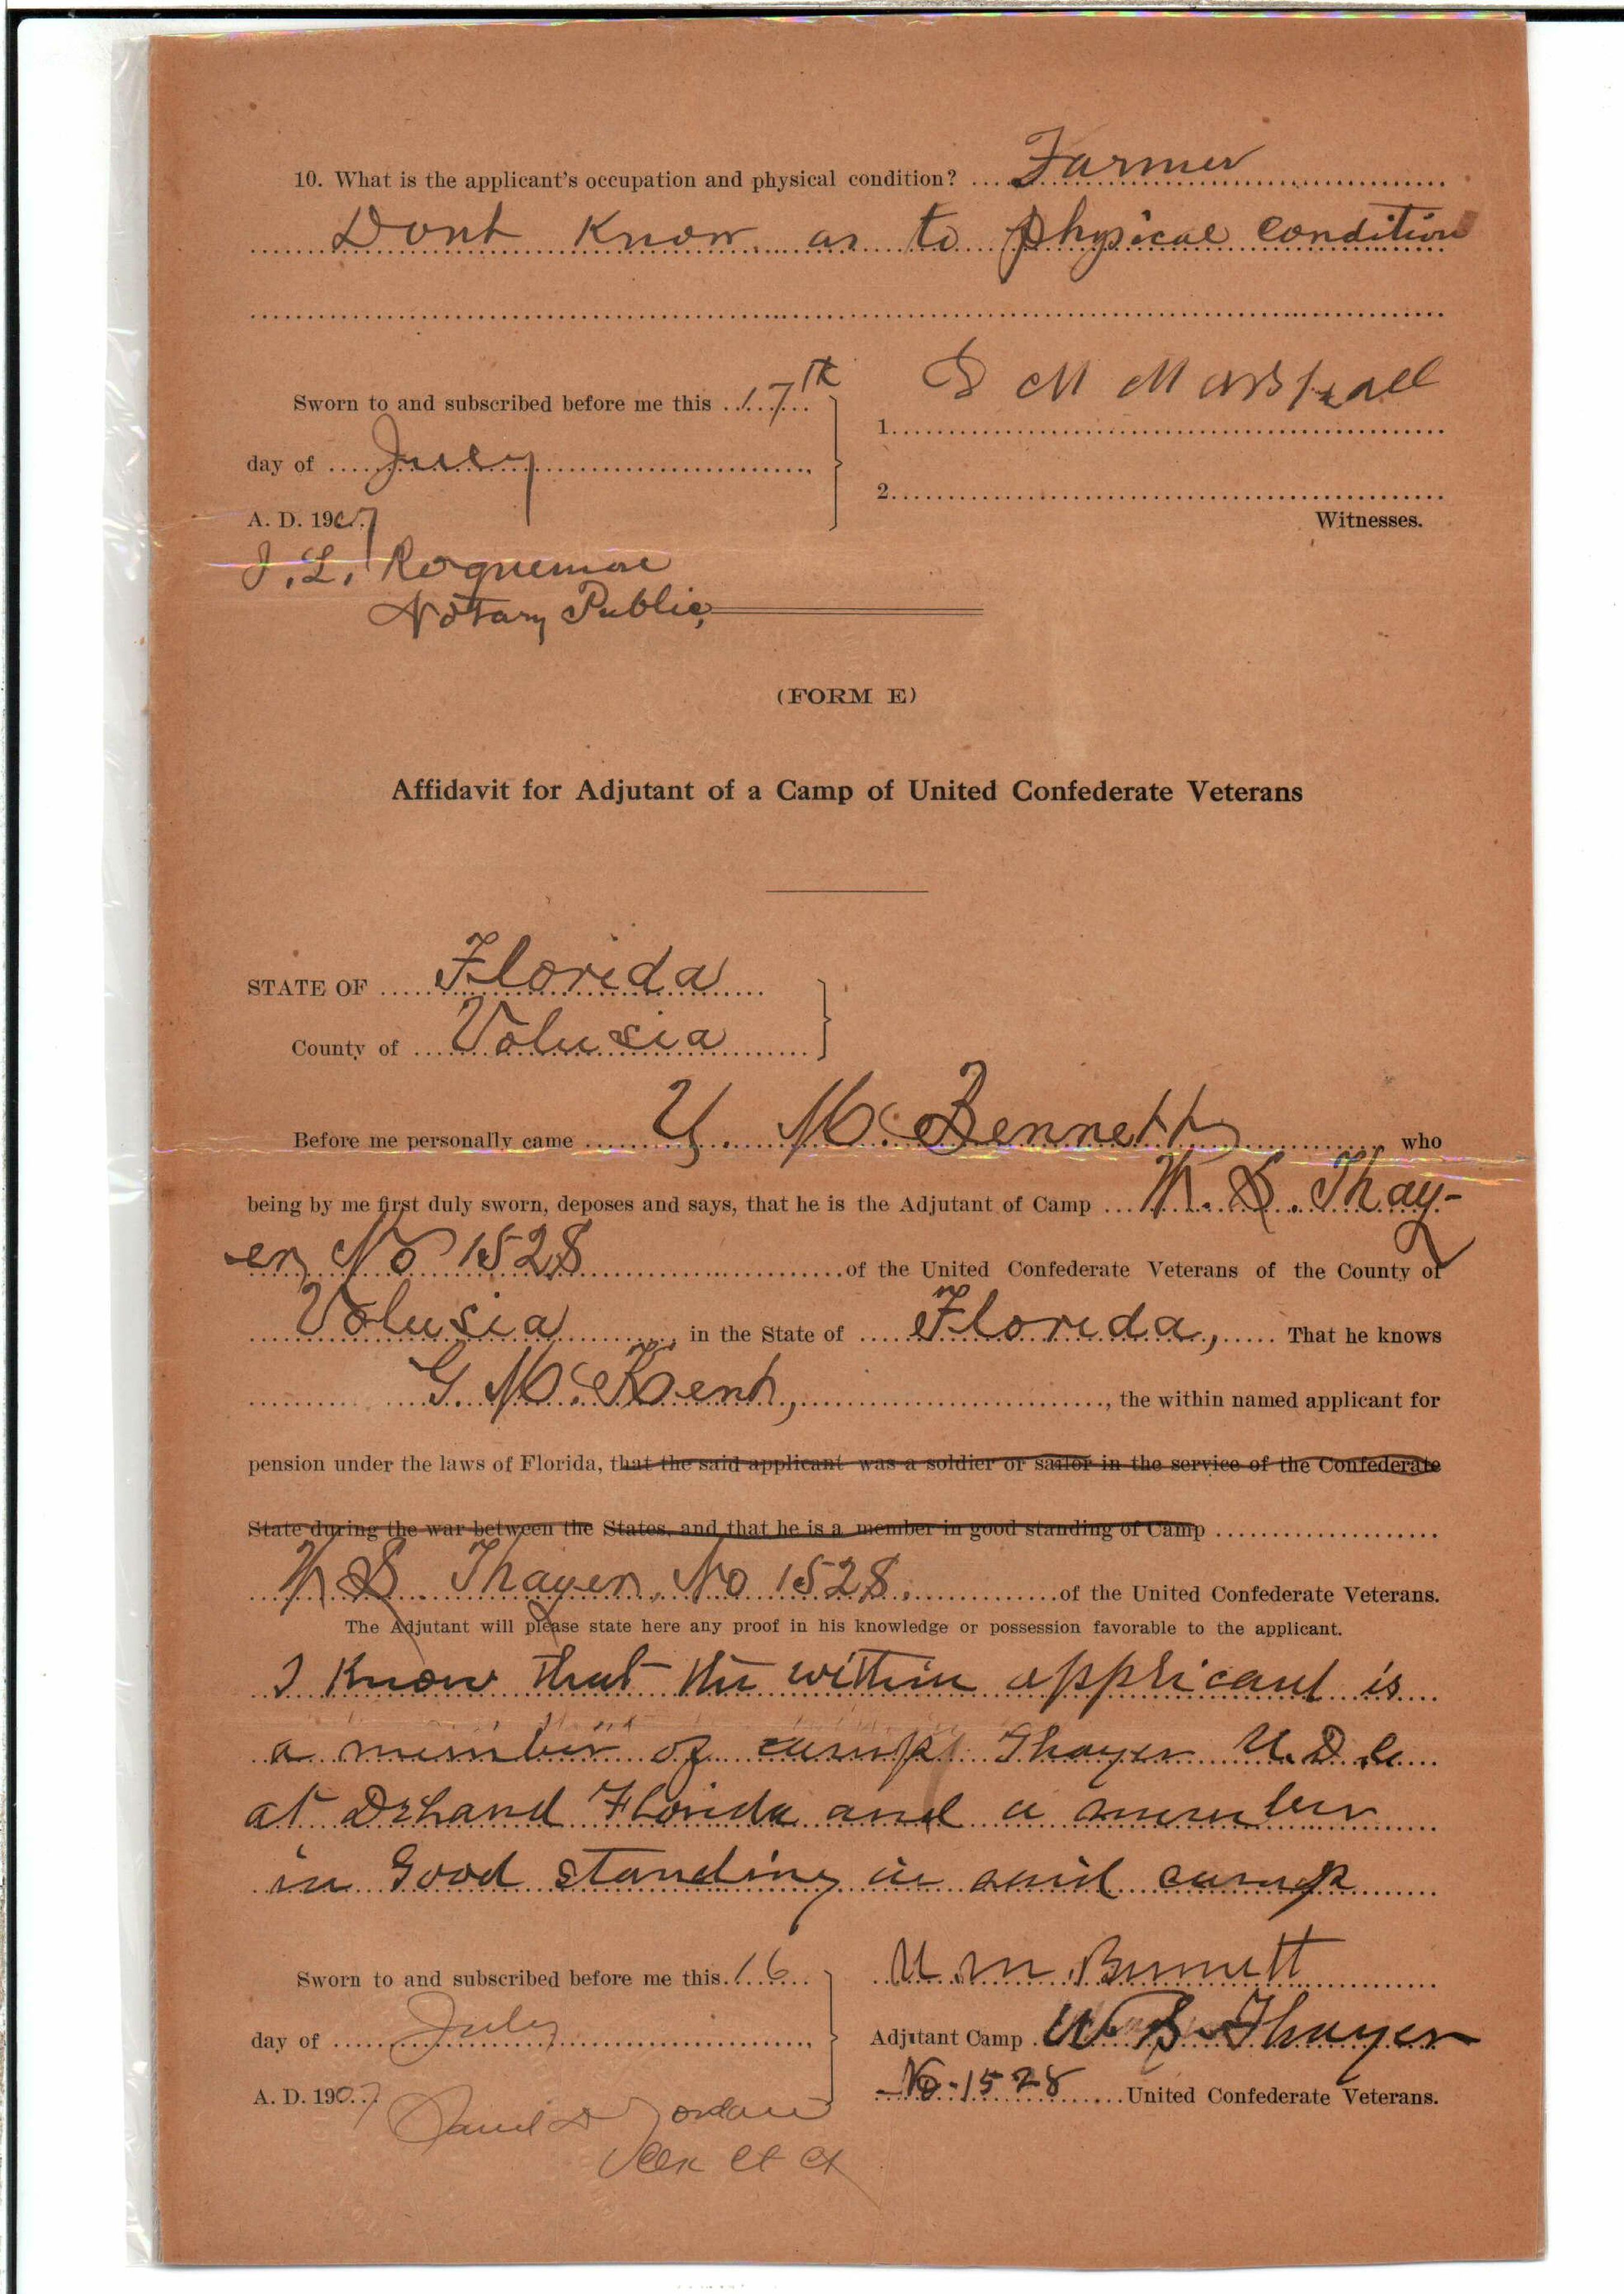 10. What is the applicant's occupation and physical condition? Farmer
Dont Know as to physical condition
Sworn to and subscribed before me this 17th
day of July
A. D. 1907
M Marshall
1.
2.
Witnesses.
J. L. Roquemore
Notary Public,
(FORM E)
Affidavit for Adjutant of a Camp of United Confederate Veterans
STATE OF Florida
County of Volusia
Before me personally came U. M. Bennett, who
being by me first duly sworn, deposes and says, that he is the Adjutant of Camp W. S. Thay-
er, No 1528 of the United Confederate Veterans of the County of
Volusia, in the State of Florida, That he knows
G. M. Kent, the within named applicant for
pension under the laws of Florida, that the said applicant was a soldier or sailor in the service of the Confederate
State during the war between the States, and that he is a member in good standing of Camp
W S. Thayer, No 1528, of the United Confederate Veterans.
The Adjutant will please state here any proof in his knowledge or possession favorable to the applicant.
I Know that the within applicant is
a member of camp Thayer
at DeLand Florida and a member
in Good standing in said camp
Sworn to and subscribed before me this 16
day of July
A. D. 1907
U. M. Bennett
Adjutant Camp W S Thayer
No. 1528 United Confederate Veterans.
D Jordan
Clk Ct Ct